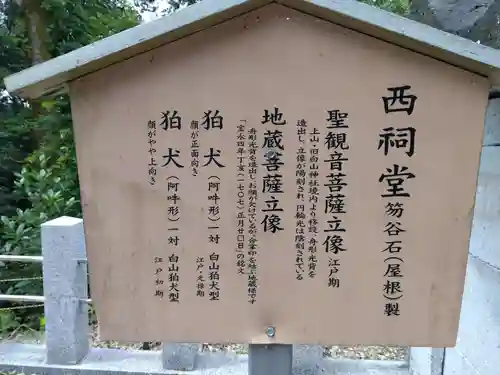 西祠堂 笏谷石(屋根)製
聖観音菩薩立像 江戸期
上山・旧白山神社境内より移設、舟形光背を
造出し、立像が陽刻され、円輪光は陰刻されている
地蔵菩薩立像
舟形光背を造出し、お顔が欠けているが合掌印を結ぶ地蔵様です
「宝永四年丁亥(一七〇七)正月廿□日」の銘文
狛犬(阿吽形)一対 白山狛犬型
顔が正面向き 江戸元禄期
狛犬(阿吽形)一対 白山狛犬型
顔がやや上向き 江戸初期